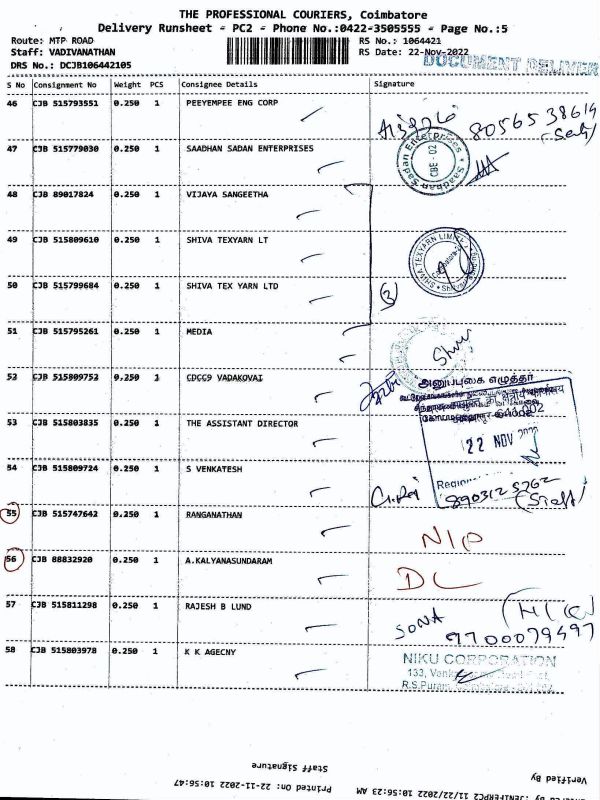 THE PROFESSIONAL COURIERS, Coimbatore
Delivery Runsheet - PC2 - Phone No.:0422-3505555 - Page No.:5
Route: MTP ROAD
RS No.: 1064421
Staff: VADIVANATHAN
RS Date: 22-Nov-2022
DRS No.: DCJB106442105
DOCUMENT DELIVER
S No Consignment No Weight PCS Consignee Details Signature
46 CJB 515793551 0.250 1 PEEYEMPEE ENG CORP
8056538614
47 CJB 515779030 0.250 1 SAADHAN SADAN ENTERPRISES
Saadhan Sadan Enterprises
CBE - 02
48 CJB 89017824 0.250 1 VIJAYA SANGEETHA
49 CJB 515809610 0.250 1 SHIVA TEXYARN LT
SHIVA TEXYARN LIMITED
50 CJB 515799684 0.250 1 SHIVA TEX YARN LTD
3
51 CJB 515795261 0.250 1 MEDIA
52 CJB 515809752 0.250 1 CDCC9 VADAKOVAI
அனுப்புகை எழுத்தர்
53 CJB 515803835 0.250 1 THE ASSISTANT DIRECTOR
22 NOV
54 CJB 515809724 0.250 1 S VENKATESH
Regional
(Staff)
55 CJB 515747642 0.250 1 RANGANATHAN
56 CJB 88832920 0.250 1 A.KALYANASUNDARAM
DL
57 CJB 515811298 0.250 1 RAJESH B LUND
SONA
7700079497
58 CJB 515803978 0.250 1 K K AGECNY
NIKU CORPORATION
R.S.Puram,
Staff Signature
Verified By
Printed On: 22-11-2022 10:56:47
By: JENIFERPC2 11/22/2022 10:56:23 AM